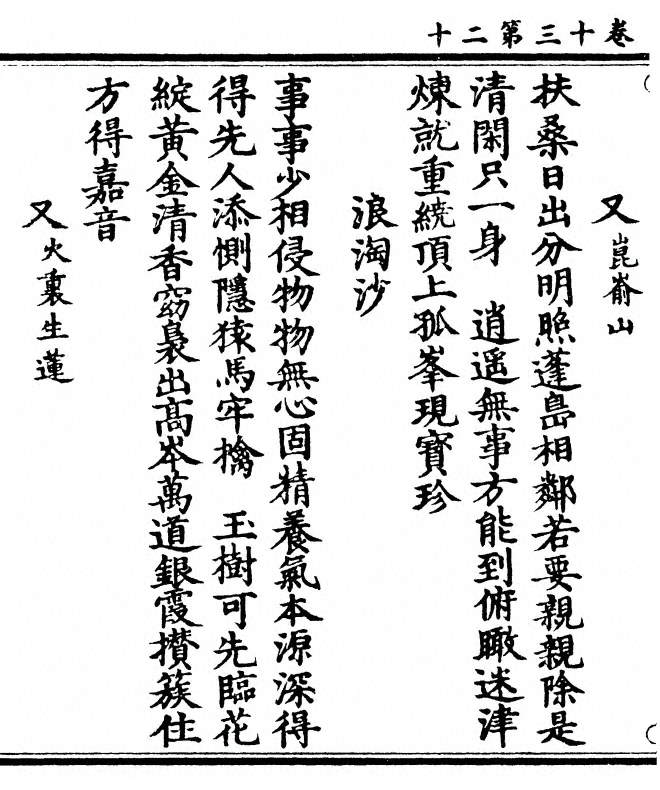 卷十三第二十
又崑崙山
扶桑日出分明照蓬島相鄰若要親親除是
清閑只一身　逍遥無事方能到俯瞰迷津
煉就重繞頂上孤峯現寶珍
浪淘沙
事事少相侵物物無心固精養氣本源深得
得先人添惻隱猿馬牢擒　玉樹可先臨花
綻黄金清香窈裊出高岑萬道銀霞攅簇住
方得嘉音
又火裏生蓮